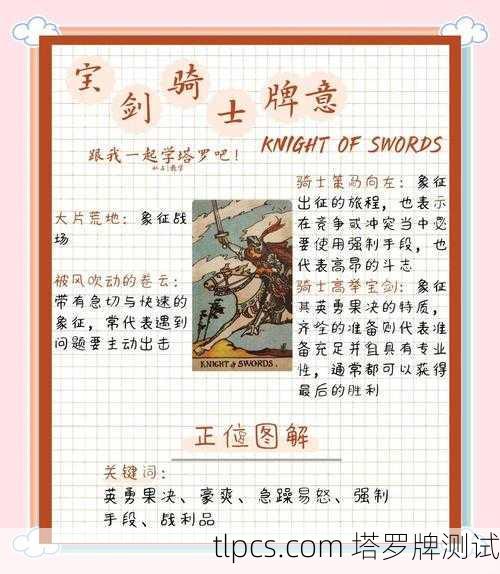 宝剑骑士牌意
KNIGHT OF SWORDS
跟我一起学塔罗吧！
大片荒地：象征战
场
被风吹动的卷云：
带有急切与快速的
象征，常代表遇到
问题要主动出击
KNIGHT of SWORDS.
骑士策马向左：象征
出征的旅程，也表示
在竞争或冲突当中必
要使用强制手段，也
代表高昂的斗志
骑士高举宝剑：象征
其英勇果决的特质，
齐全的准备则代表准
备充足并且具有专业
性，通常都可以获得
最后的胜利
正位图解
关键词：
英勇果决、豪爽、急躁易怒、强制
手段、战利品
tlpcs.com 塔罗牌测试